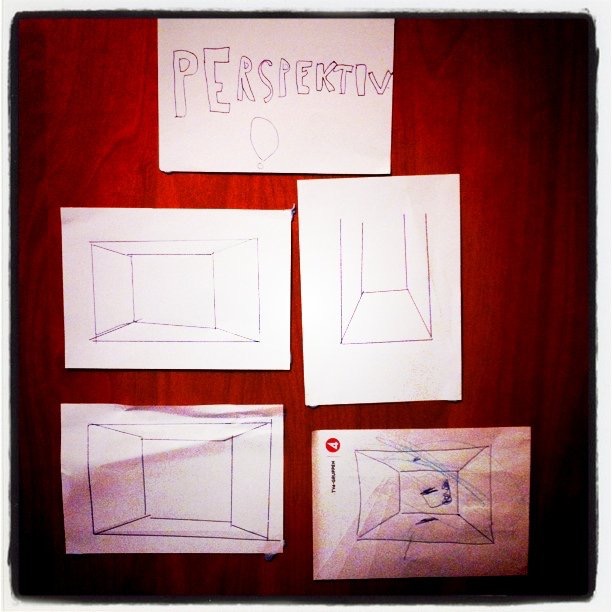 PERSPEKTIV
4
TV4-GRUPPEN